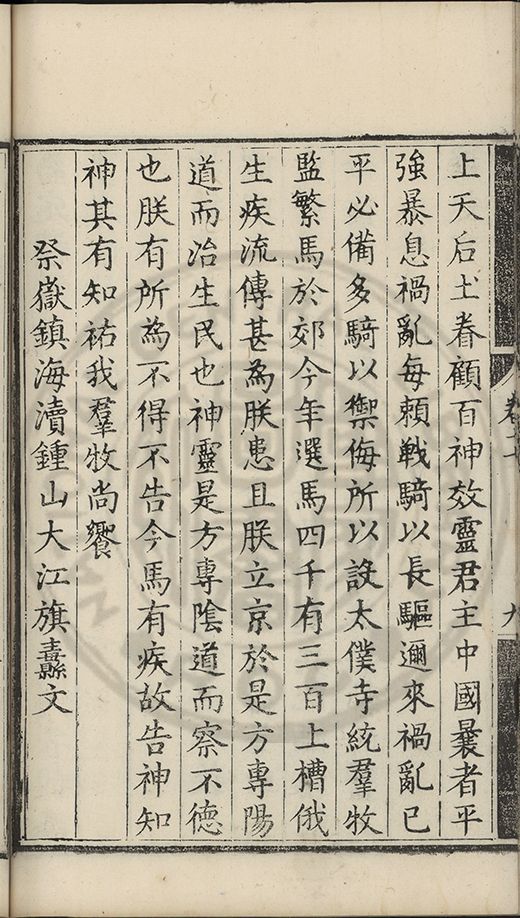 上天后土眷顧百神效靈君主中國曩者平
強暴息禍亂每賴戰騎以長驅邇來禍亂已
平必備多騎以禦侮所以設太僕寺統羣牧
監繁馬於郊今年選馬四千有三百上槽俄
生疾流傳甚為朕患且朕立京於是方專陽
道而治生民也神靈是方專陰道而察不德
也朕有所為不得不告今馬有疾故告神知
神其有知祐我羣牧尚饗
祭嶽鎮海瀆鍾山大江旗纛文